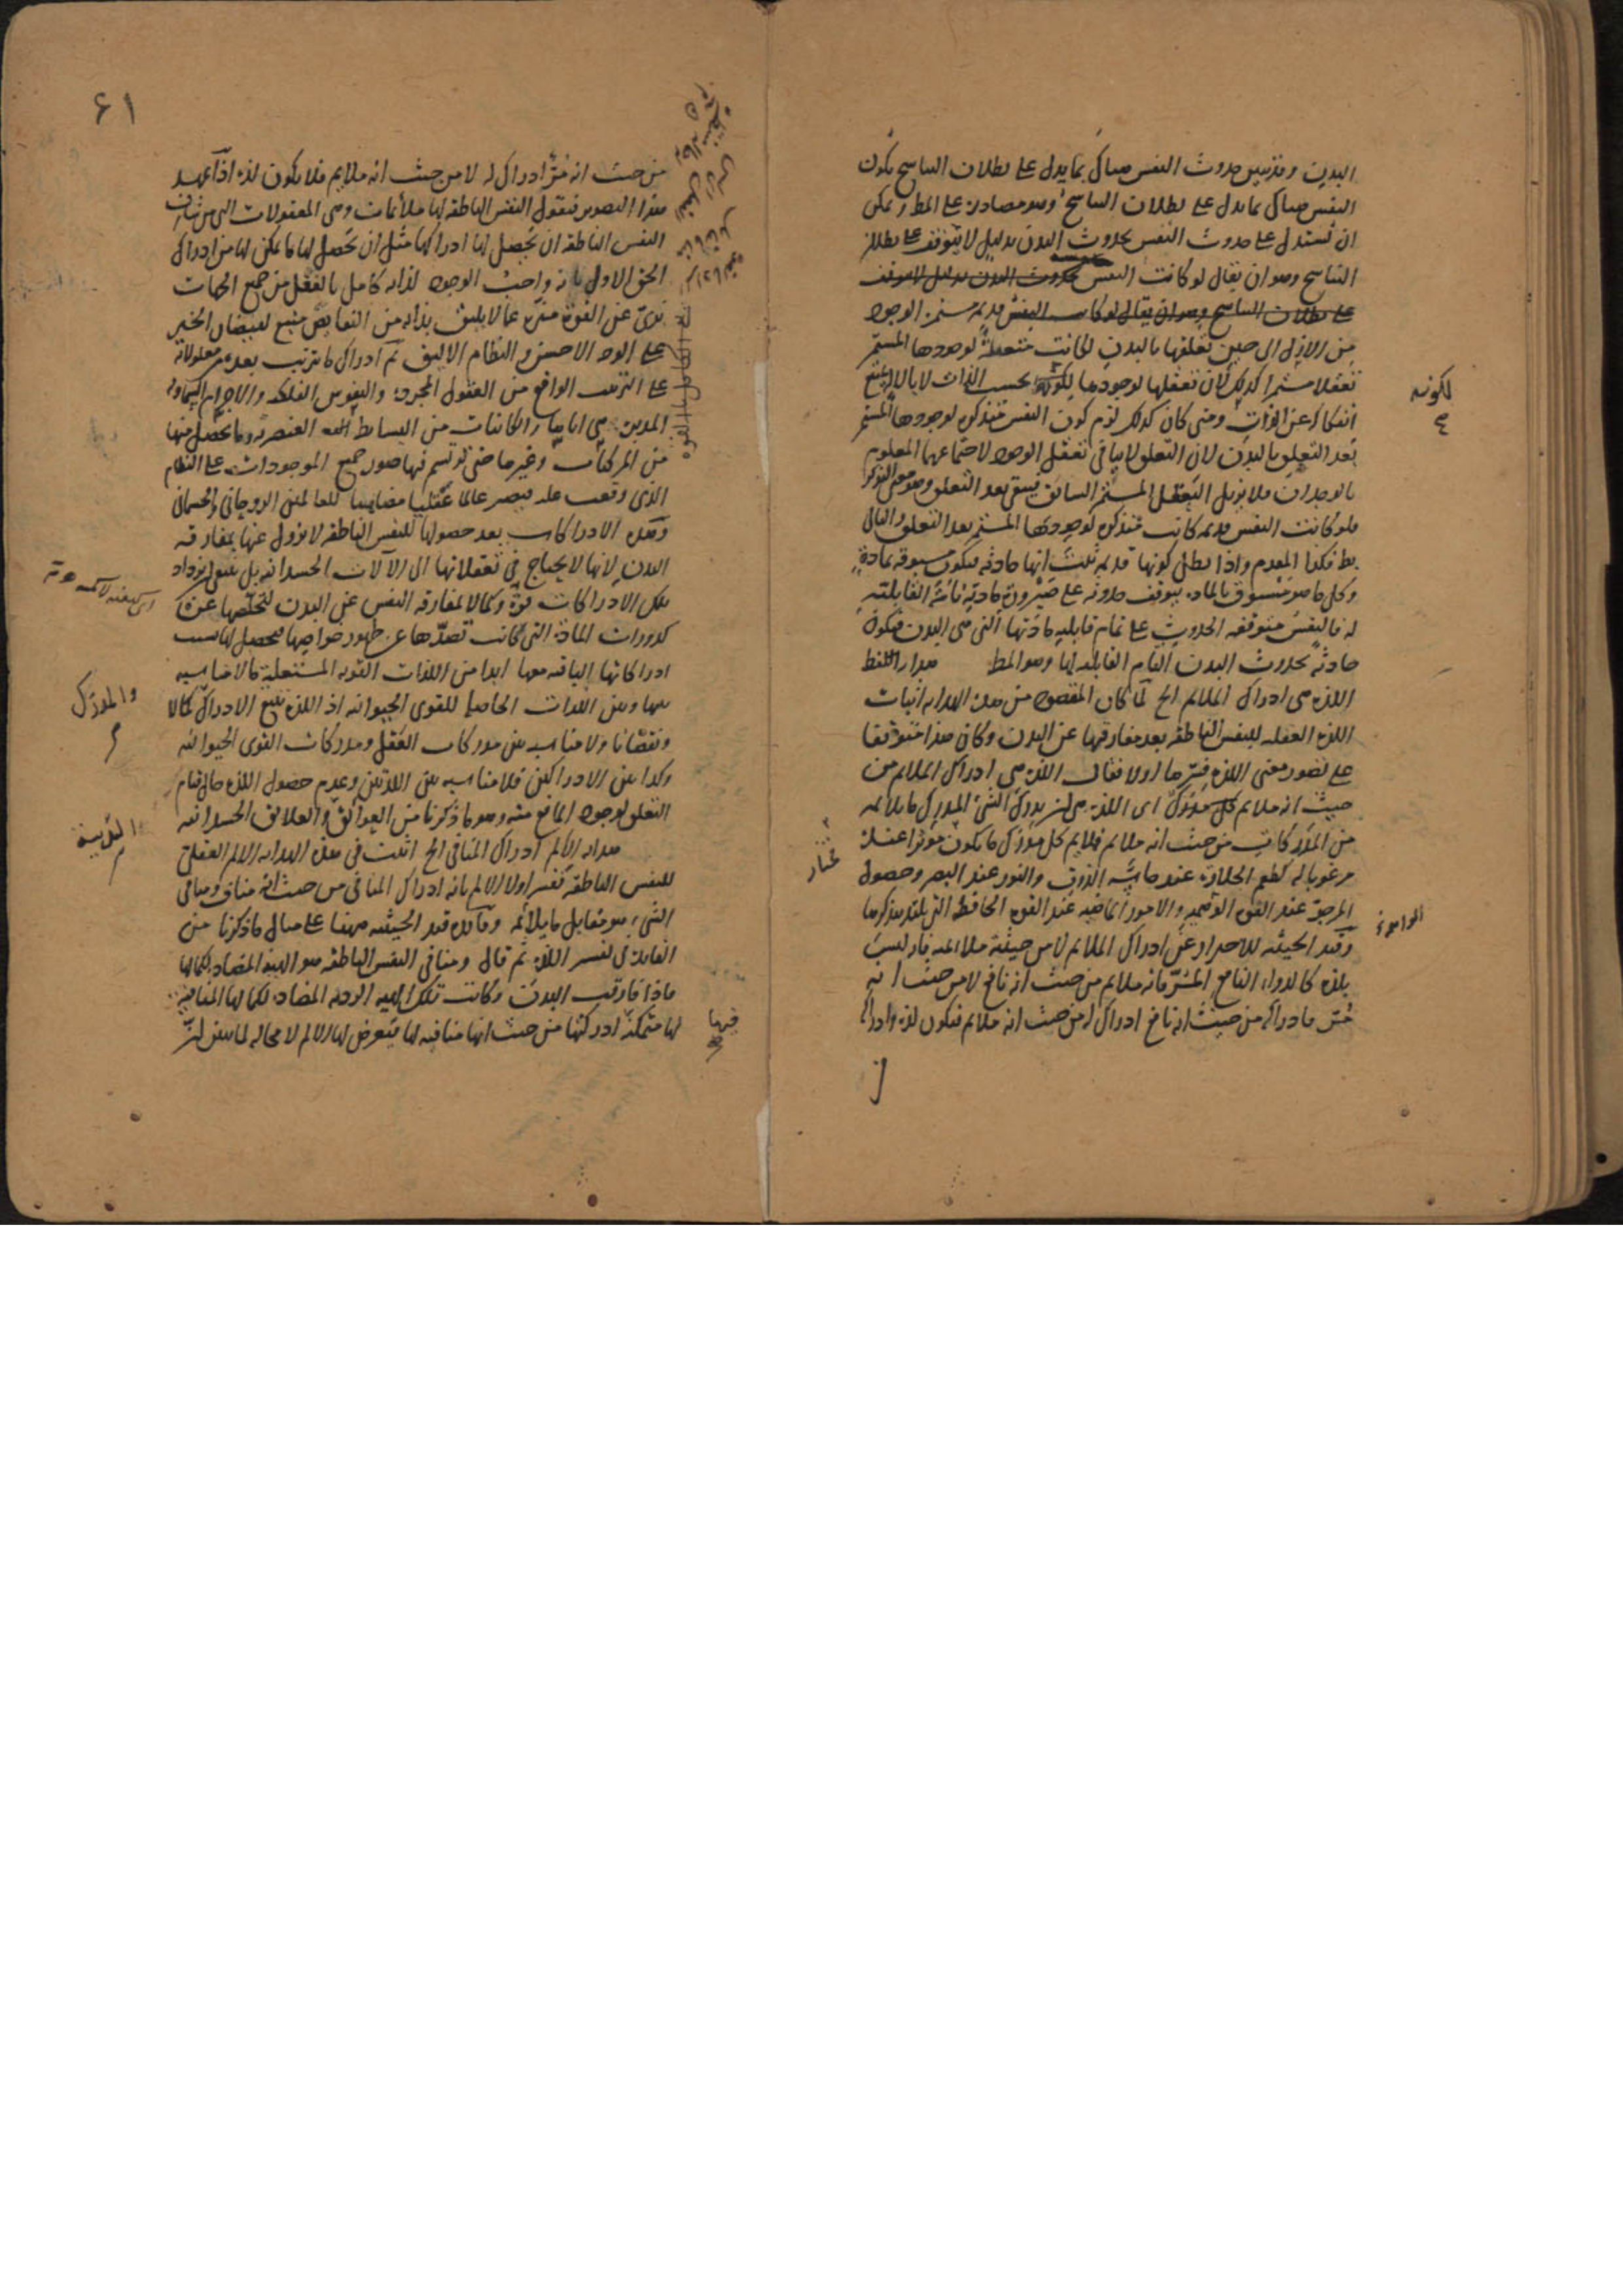 البدن وقد تبين حدوث النفس هناك بما يدل على بطلان التناسخ يكون
النفس هناك بما يدل على بطلان التناسخ وهو مصادرة على المط ويمكن
ان نستدل على حدوث النفس بحدوث البدن بدليل لا يتوقف على بطلان
التناسخ وهو ان يقال لو كانت النفس بحدوث البدن بدليل لا يتوقف
على بطلان التناسخ وهو ان يقال لو كانت النفس قديمة مستمرة الوجود
من الازل الى حين تعلقها بالبدن لكانت متعقلة لوجودها المستمر
تعقلا مستمرا كذلك لان تعقلها لوجودها لكونه بحسب الذات لا بالآلة يمتنع
انفكاكه عن الذات ومتى كان كذلك لزم كون النفس متذكرة لوجودها المستمر
بعد التعلق بالبدن لان التعلق لا ينافي تعقل الوجود لاجتماعهما المعلوم
بالوجدان فلا يزيل التعقل المستمر السابق فيبقى بعد التعلق وهو معنى التذكر
فلو كانت النفس قديمة كانت متذكرة لوجودها المستمر بعد التعلق والتالي
بط فكذا المقدم واذا بطل كونها قديمة ثبت انها حادثة فيكون مسبوقة بمادة
وكل ما هو مسبوق بالمادة يتوقف حدوثه على صيرورة مادته تامة القابلية
له فالنفس متوقفة الحدوث على تمام قابلية مادتها التي هي البدن فيكون
حادثة بحدوث البدن التام القابلية لها وهو المط هداية اللفظ
اللذة هي ادراك الملايم الخ لما كان المقصود من هذه الهداية اثبات
اللذة العقلية للنفس الناطقة بعد مفارقتها عن البدن وكان هذا متوقفا
على تصور معنى اللذة فسرها اولا فقال اللذة هي ادراك الملايم من
حيث انه ملايم كل مدرك اى اللذة هي ان يدرك الشئ المدرك ما يلايمه
من المدركات من حيث انه ملايم فملايم كل مدرك ما يكون مؤثرا عنده
مرغوبا له كطعم الحلاوة عند حاسة الذوق والنور عند البصر وحصول
المرجو عند القوة الوهمية والامور الماضية عند القوة الحافظة التي يلتذ بتذكرها
وقيد الحيثية للاحتراز عن ادراك الملايم لا من حيثية ملائمته فانه ليست
بلذة كالدواء النافع المر فانه ملايم من حيث انه نافع لا من حيث انه
مر فادراكه من حيث انه نافع ادراك له من حيث انه ملايم فيكون لذة وادراكه
لكونه
مختار
٦١
من حيث انه مر ادراك له لا من حيث انه ملايم فلا يكون لذة اذا تمهد
هذا التصوير فنقول النفس الناطقة لها ملائمات وهي المعقولات التي من شان
النفس الناطقة ان يحصل لها ادراكها مثل ان يحصل لها ما يمكن لها من ادراك
الحق الاول بانه واجب الوجود لذاته كامل بالفعل من جميع الجهات
برئ عن القوة منزه عما لا يليق بذاته من النقايص منبع لفيضان الخير
على الوجه الاحسن والنظام الاليق ثم ادراك ما يترتب بعده من معلولاته
على الترتيب الواقع من العقول المجردة والنفوس الفلكية والاجرام السماوية
والكائنات من البسايط العنصرية وما يحصل منها
من المركبات وغيرها حتى ترتسم فيها صور جميع الموجودات على النظام
الذى وقعت عليه فيصير عالما عقليا مضاهيا للعالمين الروحاني والجسماني
وهذه الادراكات بعد حصولها للنفس الناطقة لا يزول عنها بمفارقة
البدن لانها لا يحتاج في تعقلاتها الى الآلات الجسدانية بل يزداد
تلك الادراكات قوة وكمالا لمفارقة النفس عن البدن لتخلصها عن
كدورات المادة التي كانت تصدها عن ظهور خواصها فيحصل لها بسبب
ادراكاتها الباقية معها ابدا من اللذات القوية المستعلية ما لا مناسبة
بينها وبين اللذات الحاصلة للقوى الحيوانية اذ اللذة تتبع الادراك كمالا
ونقصانا ولا مناسبة بين مدركات العقل ومدركات القوى الحيوانية
وكذا بين الادراكين فلا مناسبة بين اللذتين وعدم حصول اللذة حال قيام
التعلق لوجود المانع منه وهو ما ذكرنا من العوائق والعلائق الجسدانية
هداية الالم ادراك المنافي الخ اثبت في هذه الهداية الالم العقلي
للنفس الناطقة ففسر اولا الالم بانه ادراك المنافي من حيث انه مناف ومنافي
الشئ هو مقابل ما يلائمه وفائدة قيد الحيثية ههنا على مثال ما ذكرنا من
الفائدة في تفسير اللذة ثم قال ومنافي النفس الناطقة هو الهيئة المضادة لكمالها
فاذا فارقت البدن وكانت تلك الهيئة الردية المضادة لكمالها المنافية
لها متمكنة ادركتها من حيث انها منافية لها فيعرض لها الالم لا محالة لما بين ان
والمدرك
البدنية
فيها